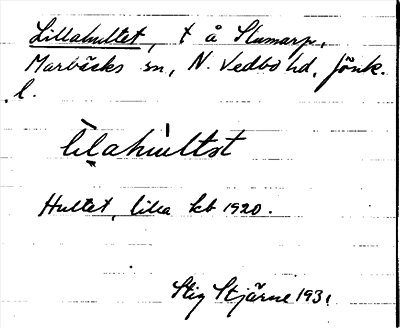 Lillahultet, t å Slumarp,
Marbäcks sn, N. Vedbo hd, Jönk.
l.
lilahultət
Hultet, lilla kb 1920.
Stig Stjärne 1931